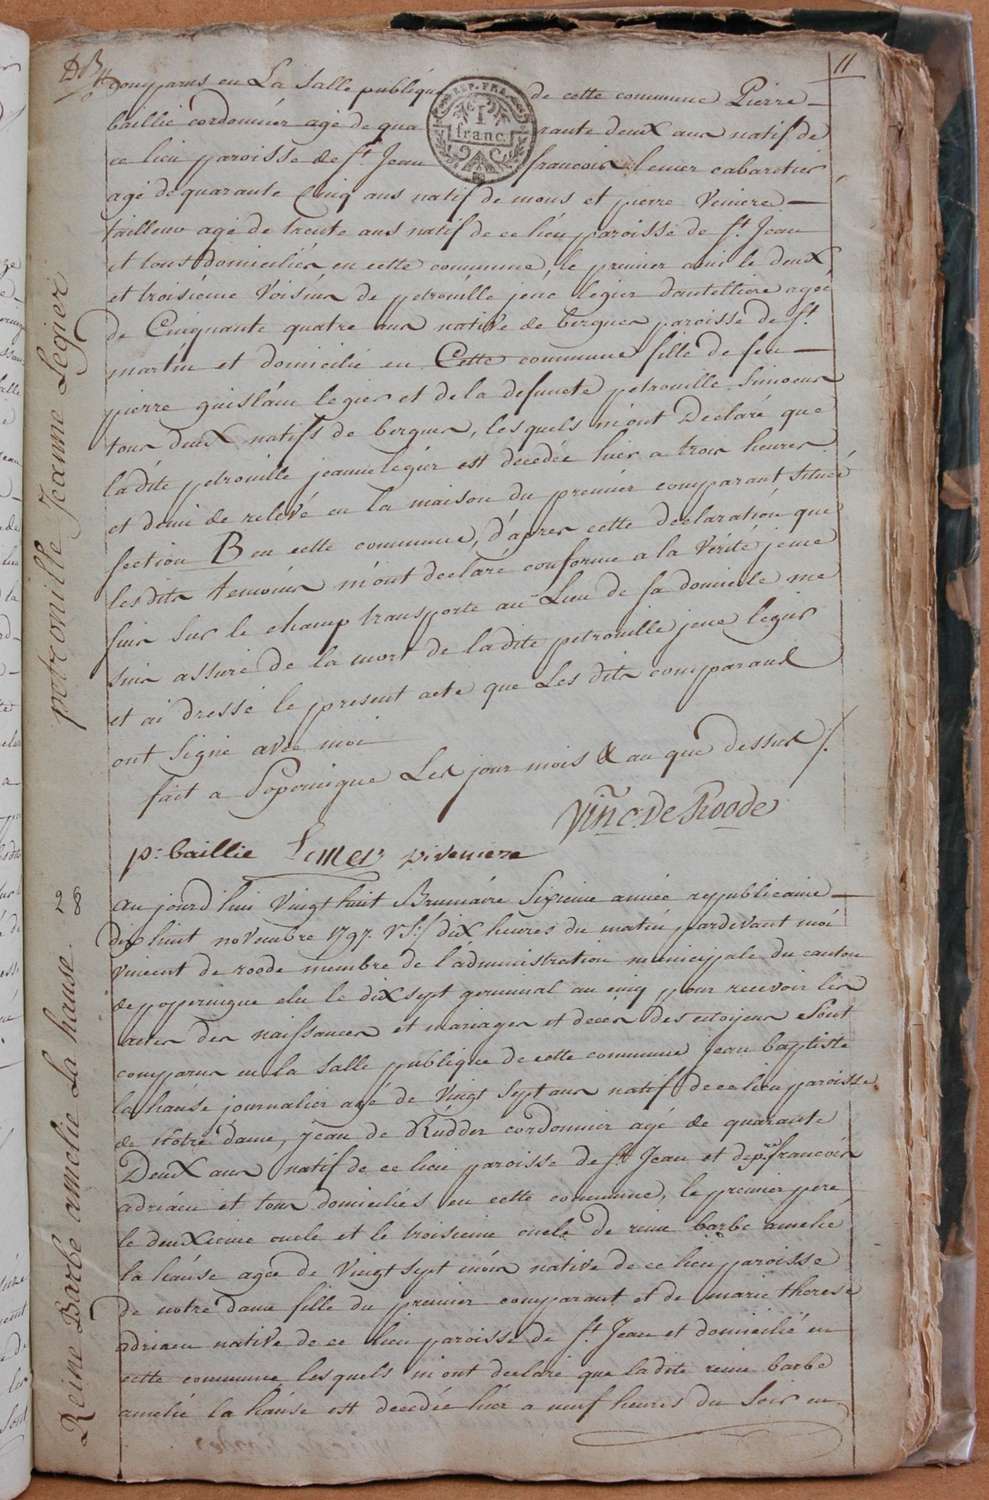 11
comparus en La Salle publique de cette commune Pierre
baillie cordonnier agé de quarante deux ans natif de
ce lieu paroisse de St Jean francois lemer cabaretier
agé de quarante Cinq ans natif de mons et pierre Veniere
tailleur agé de trente ans natif de ce lieu paroisse de St Jean
et tous domiciliés en cette commune, le premier ami le deux
et troisieme Voisins de petronille jene legier dantelliere agée
de Cinquante quatre ans native de bergues paroisse de St
martin et domicilié en Cette commune fille de feu
pierre guislain legier et de la defuncte petronille Simoens
tous deux natifs de bergues, lesquels m'ont Declaré que
ladite petronille jeanne legier est decedée hier a trois heures
et demi de relevé en la maison du premier comparant située
section B en cette commune, d'apres cette declaration que
lesdits temoins m'ont declaré conforme a la Verité je me
suis sur le champ transporte au Lieu de sa domicile me
suis assuré de la mort de ladite petronille jene legier
et ai dressé le present acte que Les dits comparans
ont signé avec moi
fait a Poperingue Les jour mois & an que dessus /.
Vinc. De Roode
p: baillie Lemer pi veniere
petronille Jeanne Legier
au jourd'hui Vingt huit Brumaire Sixieme année republicaine
dix huit novembre 1797. V:S:/ dix heures du matin pardevant moi
Vincent de roode membre de l'administration municipale du canton
de poperingue elu le dix sept germinal an cinq pour recevoir les
actes des naissances et mariages et deces des citoyens Sont
comparus en la salle publique de cette commune Jean baptiste
la hause journalier agé de Vingt Sept ans natif de ce lieu paroisse
de Nôtre dame, Jean de Rudder cordonnier agé de quarante
Deux ans natif de ce lieu paroisse de St Jean et de prre francois
adriaen et tous domiciliés en cette commune, le premier pere
le deuxieme oncle et le troisieme oncle de reine barbe amelie
la hause agée de Vingt sept mois native de ce lieu paroisse
de notre dame fille du premier comparant et de marie therese
adriaen native de ce lieu paroisse de St Jean et domicilié en
cette commune lesquels m'ont declaré que ladite reine barbe
amelie la hause est decedée hier a neuf heures du Soir en
Reine Barbe amelie La hause. 28
REP. FRA.
1
franc.